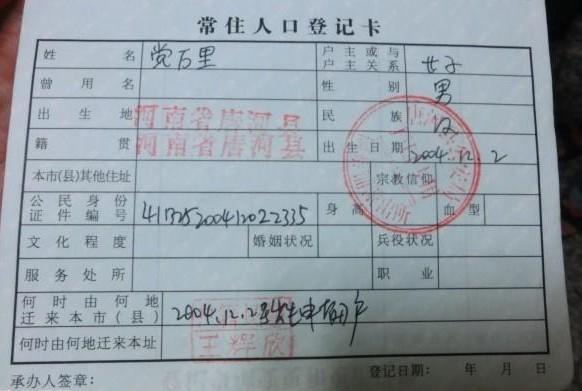 常住人口登记卡
姓名 党万里 户主或与户主关系 女子
曾用名 性别 男
出生地 河南省唐河县 民族 汉
籍贯 河南省唐河县 出生日期 2004.12.2
本市(县)其他住址 宗教信仰
公民身份证件编号 身高 血型
文化程度 婚姻状况 兵役状况
服务处所 职业
何时由何地迁来本市(县) 2004.12.2
何时由何地迁来本址 王辉欣
承办人签章： 登记日期： 年 月 日